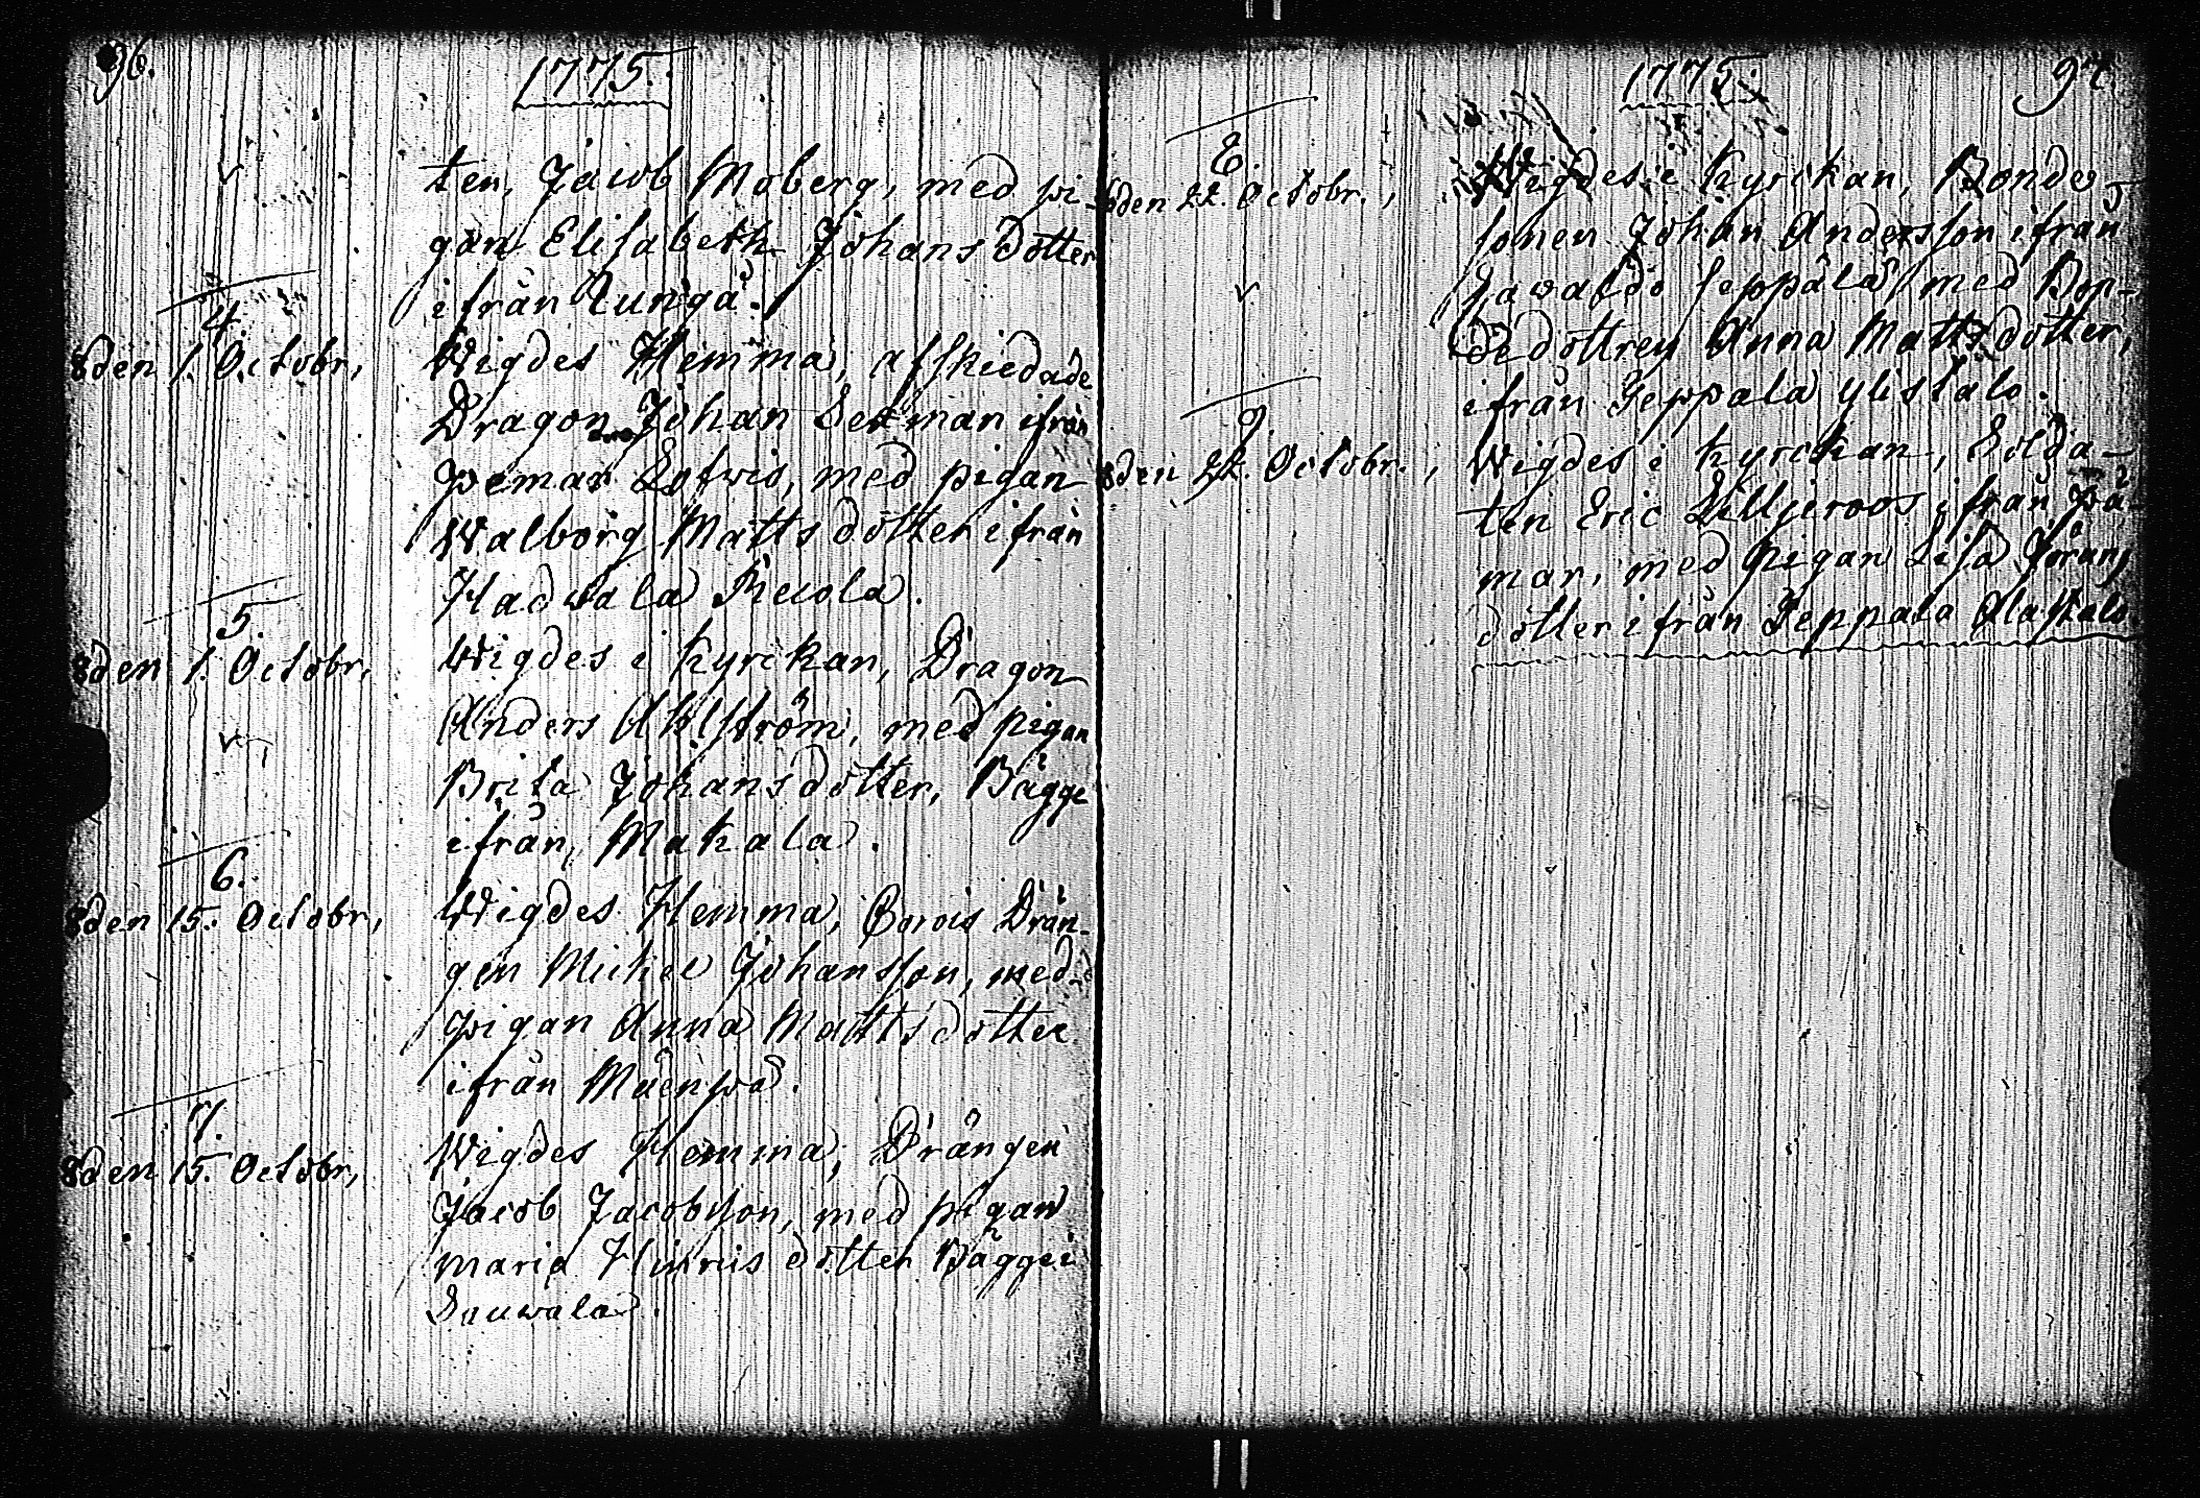 96.
1775.
ten, Jacob Moberg, med pi-
gan Elisabeth Johans dotter
ifrån Rungå.
4.
den 1. Octobr,
Wigdes Hemma, afskiedade
Dragon Johan Sedman ifrån
Pemar Lofwis, med pigan
Walborg Matts dotter ifrån
Hadwala Kieola.
5.
den 1. Octobr,
Wigdes i kyrckan, Dragon
Anders Ahlström, med pigan
Brita Johans dotter, Bägge
ifrån Makala.
6.
den 15. Octobr,
Wigdes Hemma, Drän-
gen Mickel Johansson, med
pigan Anna Matts dotter
ifrån Måenpä.
7.
den 15. Octobr,
Wigdes Hemma, Drängen
Jacob Jacobsson, med pigan
Maria Hinrics dotter Bägge i
Sauwala.
97
1775.
8.
den 22. Octobr.,
Wigdes i kyrckan, Bonde
sonen Johan Andersson ifrån
Seppälä med Bon-
de dottren Anna Matts dotter,
ifrån Seppala ylistalo.
9.
den 22. Octobr.,
Wigdes i kyrckan, Solda-
ten Eric Lilljeroos ifrån Pä-
mar, med pigan Lisa Jörans
dotter ifrån Seppala Alastalo